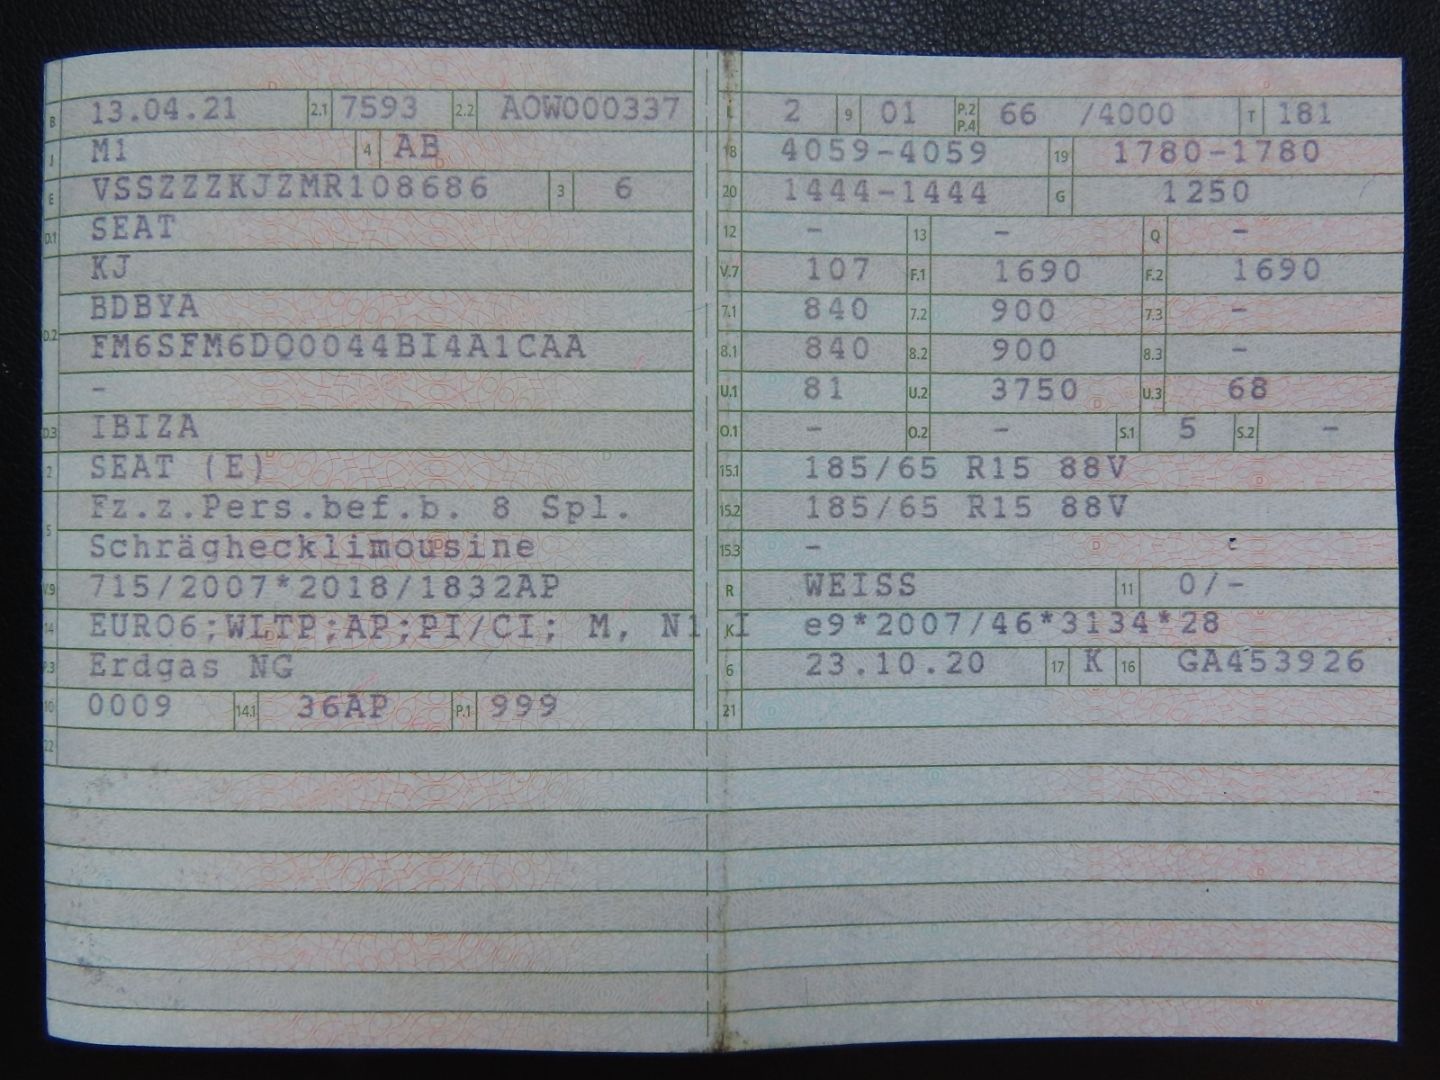 B 13.04.21 2.1 7593 2.2 AOW000337
J M1 4 AB
E VSSZZZKJZMR108686 3 6
D.1 SEAT
KJ
BDBYA
D.2 FM6SFM6DQ0044BI4A1CAA
-
D.3 IBIZA
2 SEAT (E)
Fz.z.Pers.bef.b. 8 Spl.
5 Schräghecklimousine
V.9 715/2007*2018/1832AP
14 EURO6;WLTP;AP;PI/CI; M, N1 I
P.3 Erdgas NG
10 0009 14.1 36AP P.1 999
22
L 2 9 01 P.2 P.4 66 /4000 T 181
18 4059-4059 19 1780-1780
20 1444-1444 G 1250
12 - 13 - Q -
V.7 107 F.1 1690 F.2 1690
7.1 840 7.2 900 7.3 -
8.1 840 8.2 900 8.3 -
U.1 81 U.2 3750 U.3 68
O.1 - O.2 - S.1 5 S.2 -
15.1 185/65 R15 88V
15.2 185/65 R15 88V
15.3 -
R WEISS 11 0/-
K e9*2007/46*3134*28
6 23.10.20 17 K 16 GA453926
21